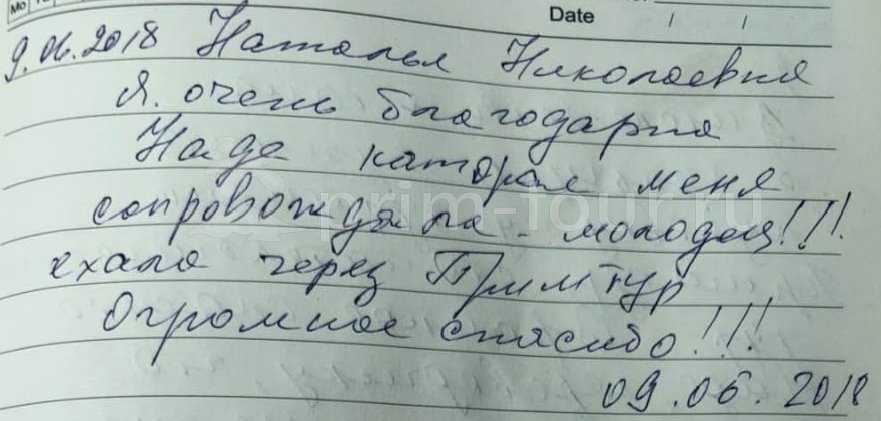 Mo
Date / /
9.06.2018 Наталья Николаевна
Я. очень благодарна
Надя катороя меня
сопровождала - молодец!!!
ехала через ПримТур
Огромное спасибо!!!
09.06.2018
prim-tour.ru